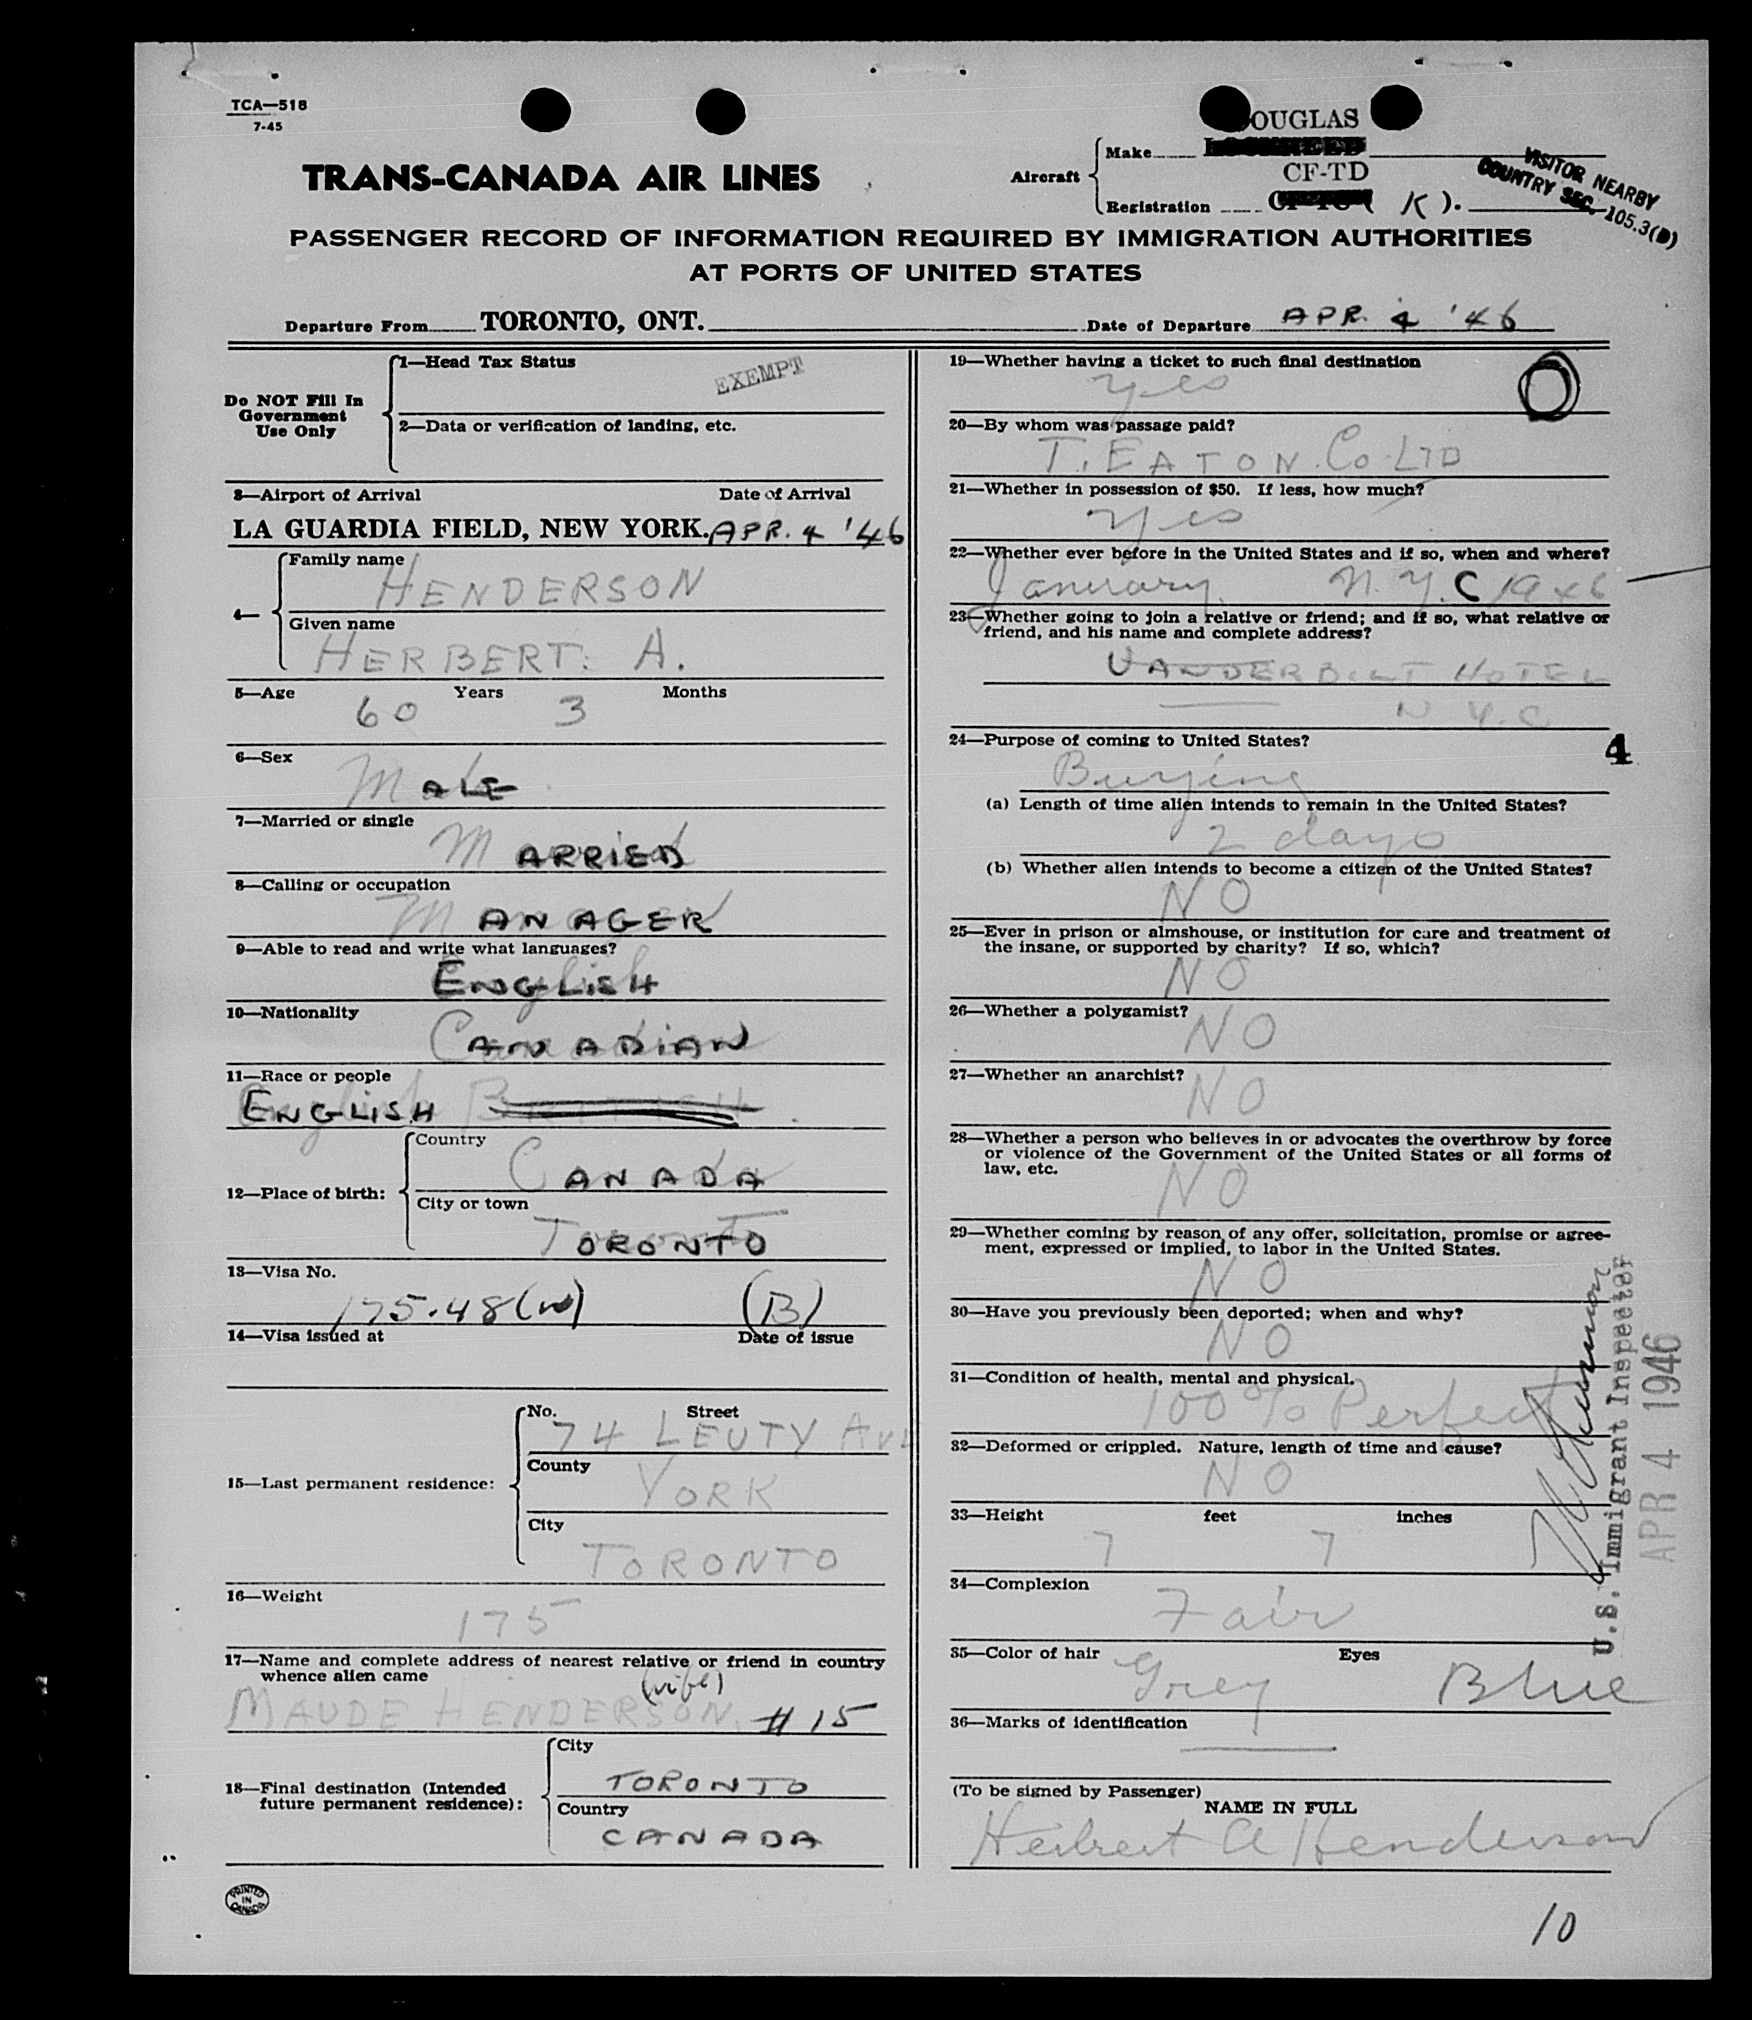 TCA—518
7-45
OUGLAS
TRANS-CANADA AIR LINES
Aircraft
Make
CF-TD
Registration
K).
VISITOR NEARBY
COUNTRY SEC. 105.3(B)
PASSENGER RECORD OF INFORMATION REQUIRED BY IMMIGRATION AUTHORITIES
AT PORTS OF UNITED STATES
Departure From TORONTO, ONT. Date of Departure APR. 4 '46
Do NOT Fill In
Government
Use Only
1—Head Tax Status
EXEMPT
2—Data or verification of landing, etc.
3—Airport of Arrival Date of Arrival
LA GUARDIA FIELD, NEW YORK. APR. 4 '46
4—
Family name
HENDERSON
Given name
HERBERT. A.
5—Age Years Months
60 3
6—Sex
MALE
7—Married or single
MARRIED
8—Calling or occupation
MANAGER
9—Able to read and write what languages?
ENGLISH
10—Nationality
CANADIAN
11—Race or people
ENGLISH BRITISH
12—Place of birth:
Country
CANADA
City or town
TORONTO
13—Visa No.
175.48(W) (B)
14—Visa issued at Date of issue
15—Last permanent residence:
No. Street
74 LEUTY AVE
County
YORK
City
TORONTO
16—Weight
175
17—Name and complete address of nearest relative or friend in country
whence alien came
(wife)
MAUDE HENDERSON. # 15
18—Final destination (Intended
future permanent residence):
City
TORONTO
Country
CANADA
PRINTED
IN
CANADA
19—Whether having a ticket to such final destination
yes
20—By whom was passage paid?
T. EATON. Co. LTD
21—Whether in possession of $50. If less, how much?
yes
22—Whether ever before in the United States and if so, when and where?
January. N.Y.C 1946
23—Whether going to join a relative or friend; and if so, what relative or
friend, and his name and complete address?
VANDERBILT HOTEL
N.Y.C
24—Purpose of coming to United States?
4
Buying
(a) Length of time alien intends to remain in the United States?
2 days
(b) Whether alien intends to become a citizen of the United States?
NO
25—Ever in prison or almshouse, or institution for care and treatment of
the insane, or supported by charity? If so, which?
NO
26—Whether a polygamist?
NO
27—Whether an anarchist?
NO
28—Whether a person who believes in or advocates the overthrow by force
or violence of the Government of the United States or all forms of
law, etc.
NO
29—Whether coming by reason of any offer, solicitation, promise or agree-
ment, expressed or implied, to labor in the United States.
NO
30—Have you previously been deported; when and why?
NO
31—Condition of health, mental and physical.
100% Perfect
32—Deformed or crippled. Nature, length of time and cause?
NO
33—Height feet inches
7 7
34—Complexion
Fair
35—Color of hair Eyes
Grey Blue
36—Marks of identification
(To be signed by Passenger)
NAME IN FULL
Herbert A Henderson
U.S. Immigrant Inspector
APR 4 1946
10